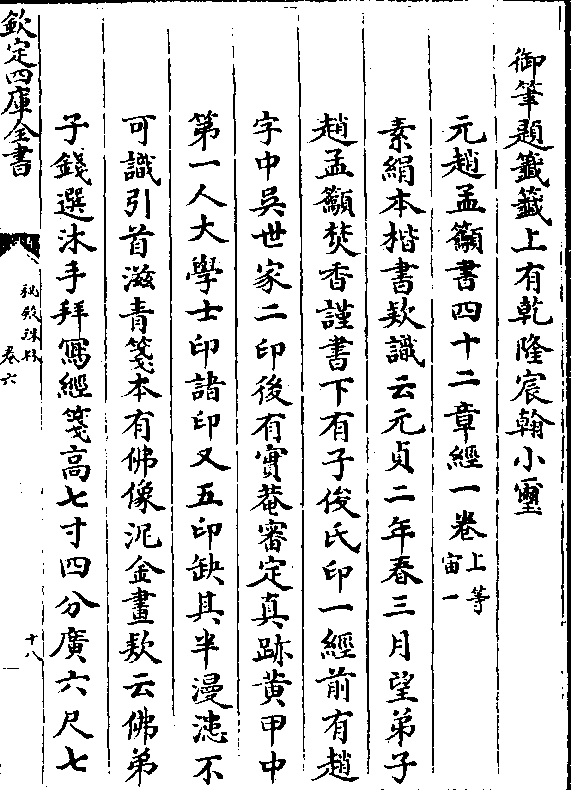 御筆題籤籤上有乾隆宸翰小璽
元趙孟籲書四十二章經一卷上等宙一
素絹本楷書欵識云元貞二年春三月望弟子
趙孟籲焚香謹書下有子俊氏印一經前有趙
字中吳世家二印後有實菴審定真跡黄甲中
第一人大學士印諸印又五印缺其半漫漶不
可識引首滋青箋本有佛像泥金畫欵云佛弟
子錢選沐手拜寫經箋高七寸四分廣六尺七
欽定四庫全書
秘殿珠林
卷六
十八